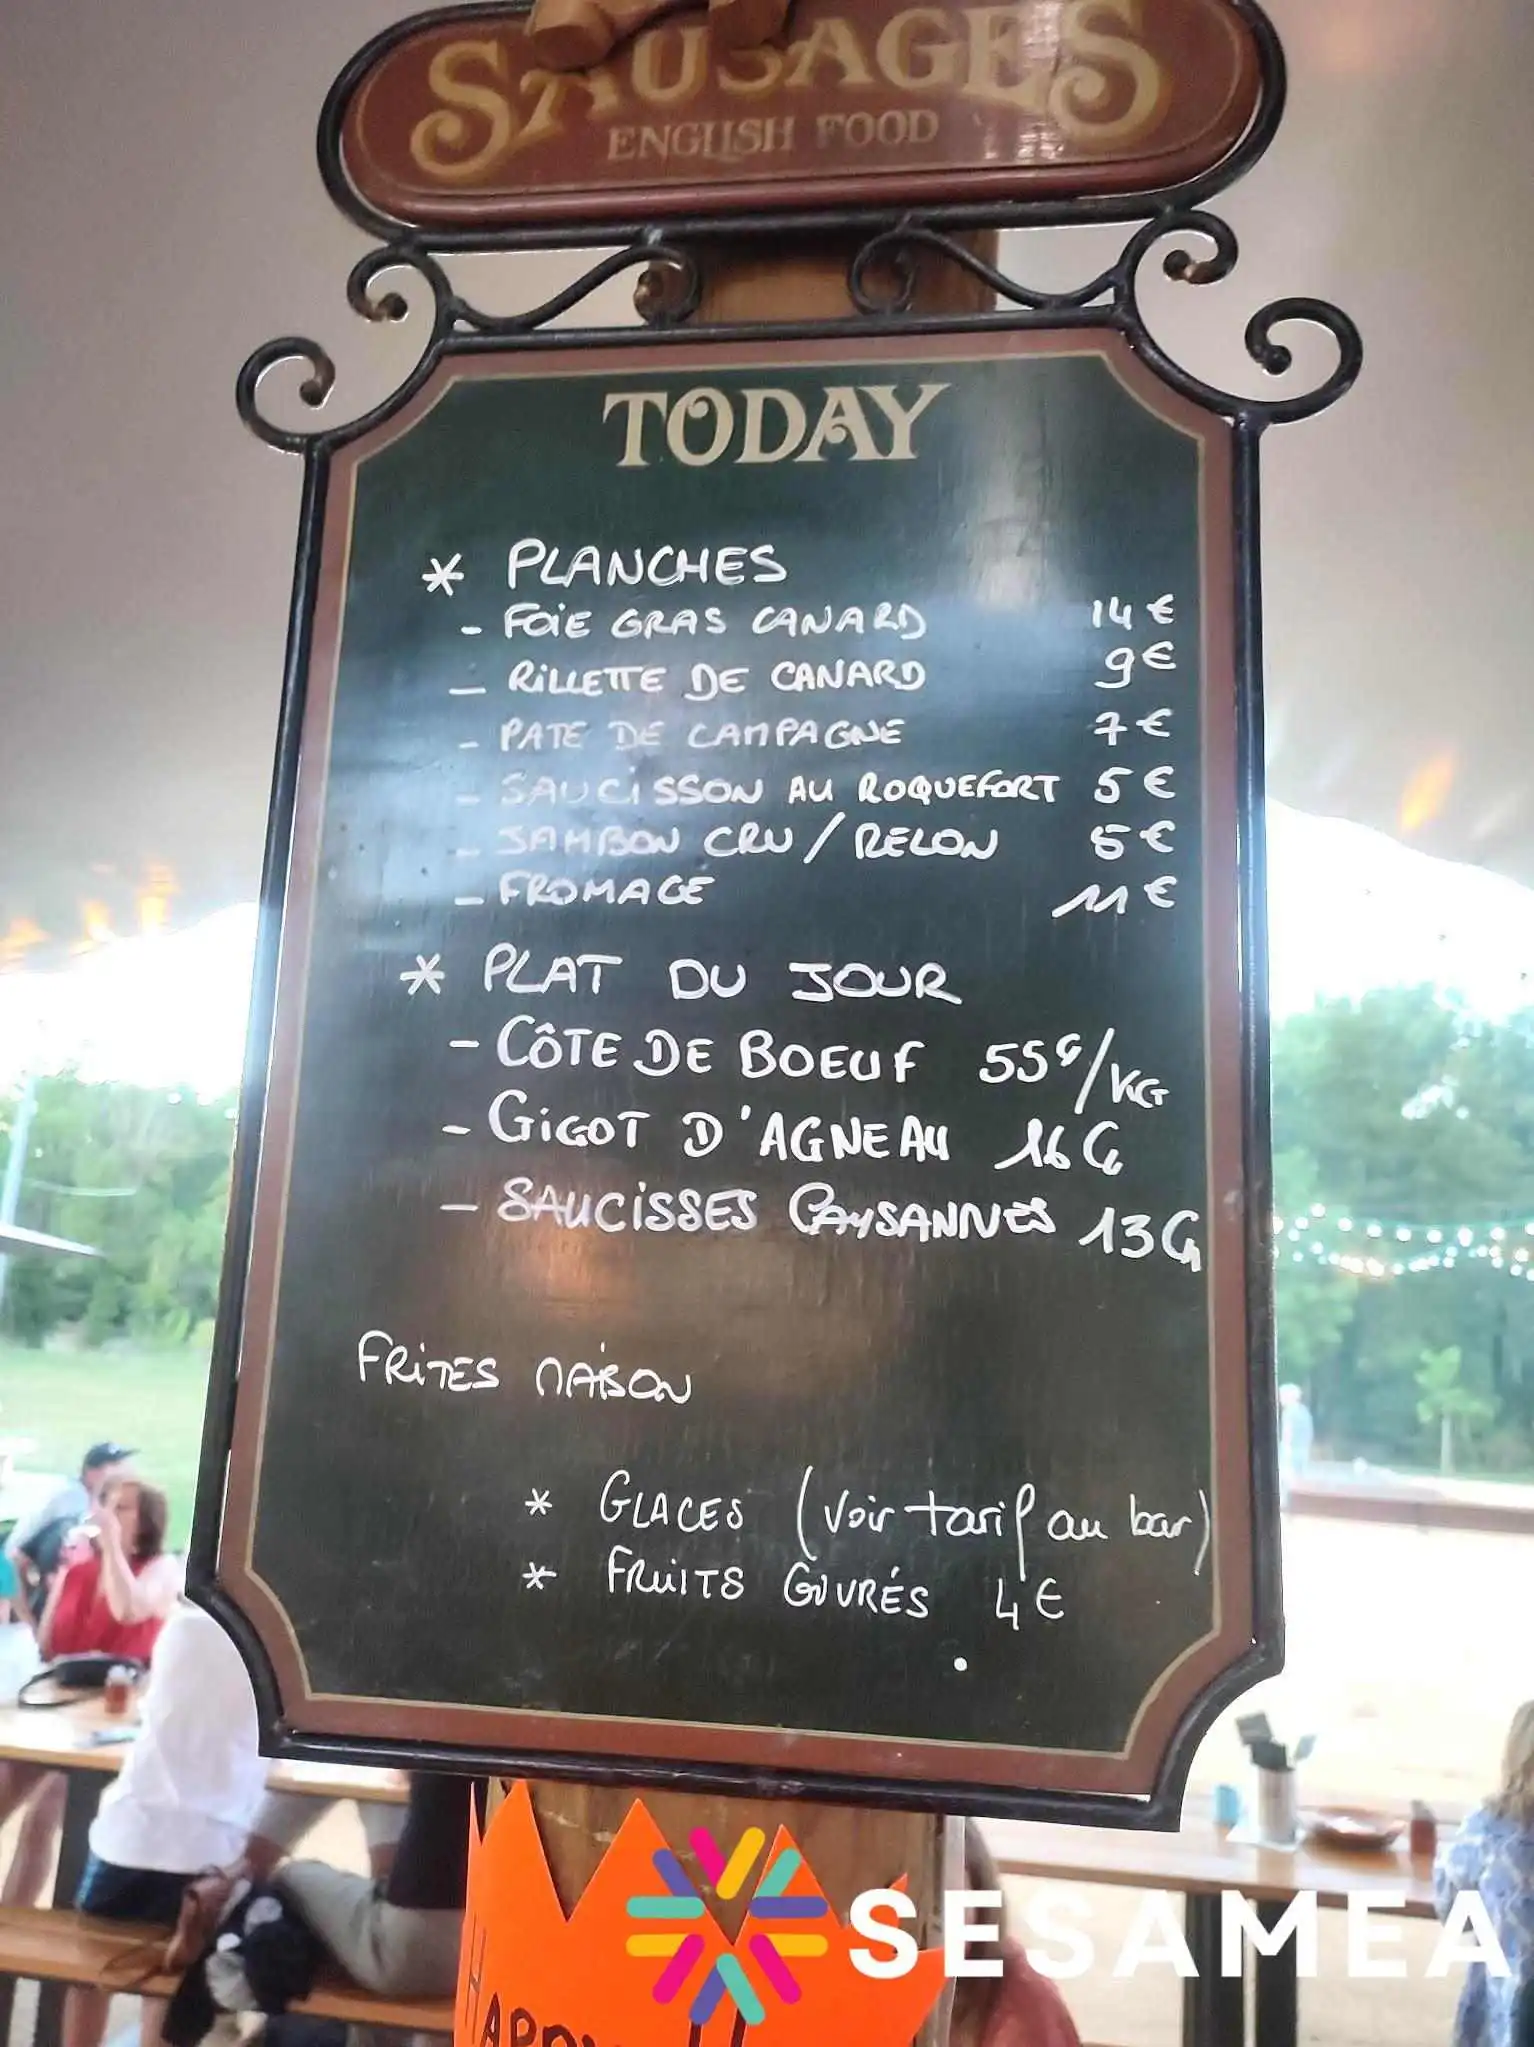 SAUSAGES
ENGLISH FOOD
TODAY
* PLANCHES
- FOIE GRAS CANARD 14€
- RILLETTE DE CANARD 9€
- PATE DE CAMPAGNE 7€
- SAUCISSON AU ROQUEFORT 5€
- JAMBON CRU / RELON 5€
- FROMAGE 11€
* PLAT DU JOUR
- CÔTE DE BOEUF 55€/KG
- GIGOT D'AGNEAU 16€
- SAUCISSES PAYSANNES 13€
FRITES MAISON
* GLACES (voir tarif au bar)
* FRUITS GIVRÉS 4€
SESAMEA